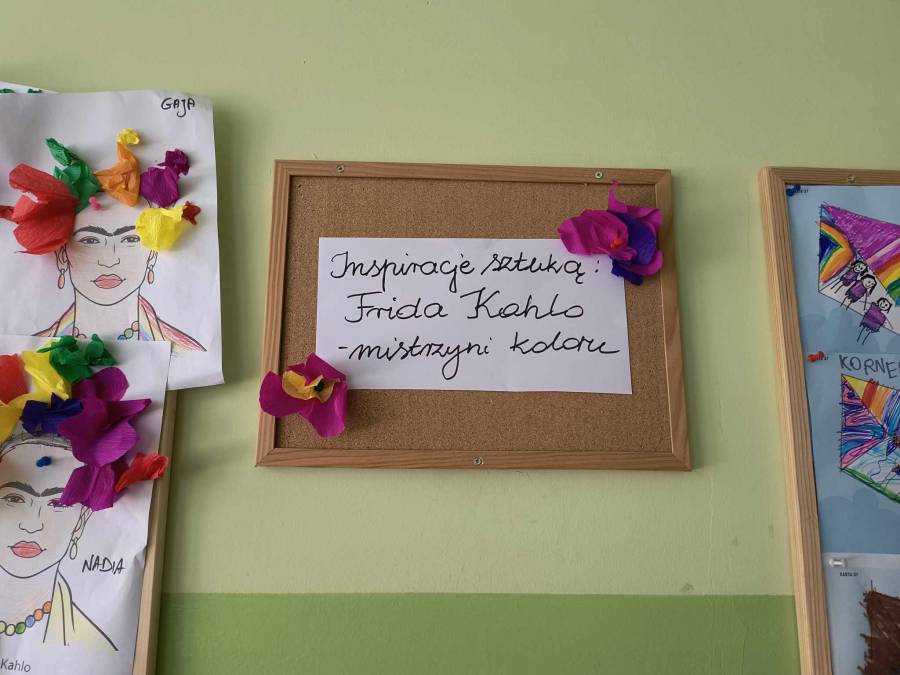 GAJA
Inspiracje sztuką:
Frida Kahlo
-mistrzyni koloru
NADIA
Kahlo
KORNE
KARTA 37